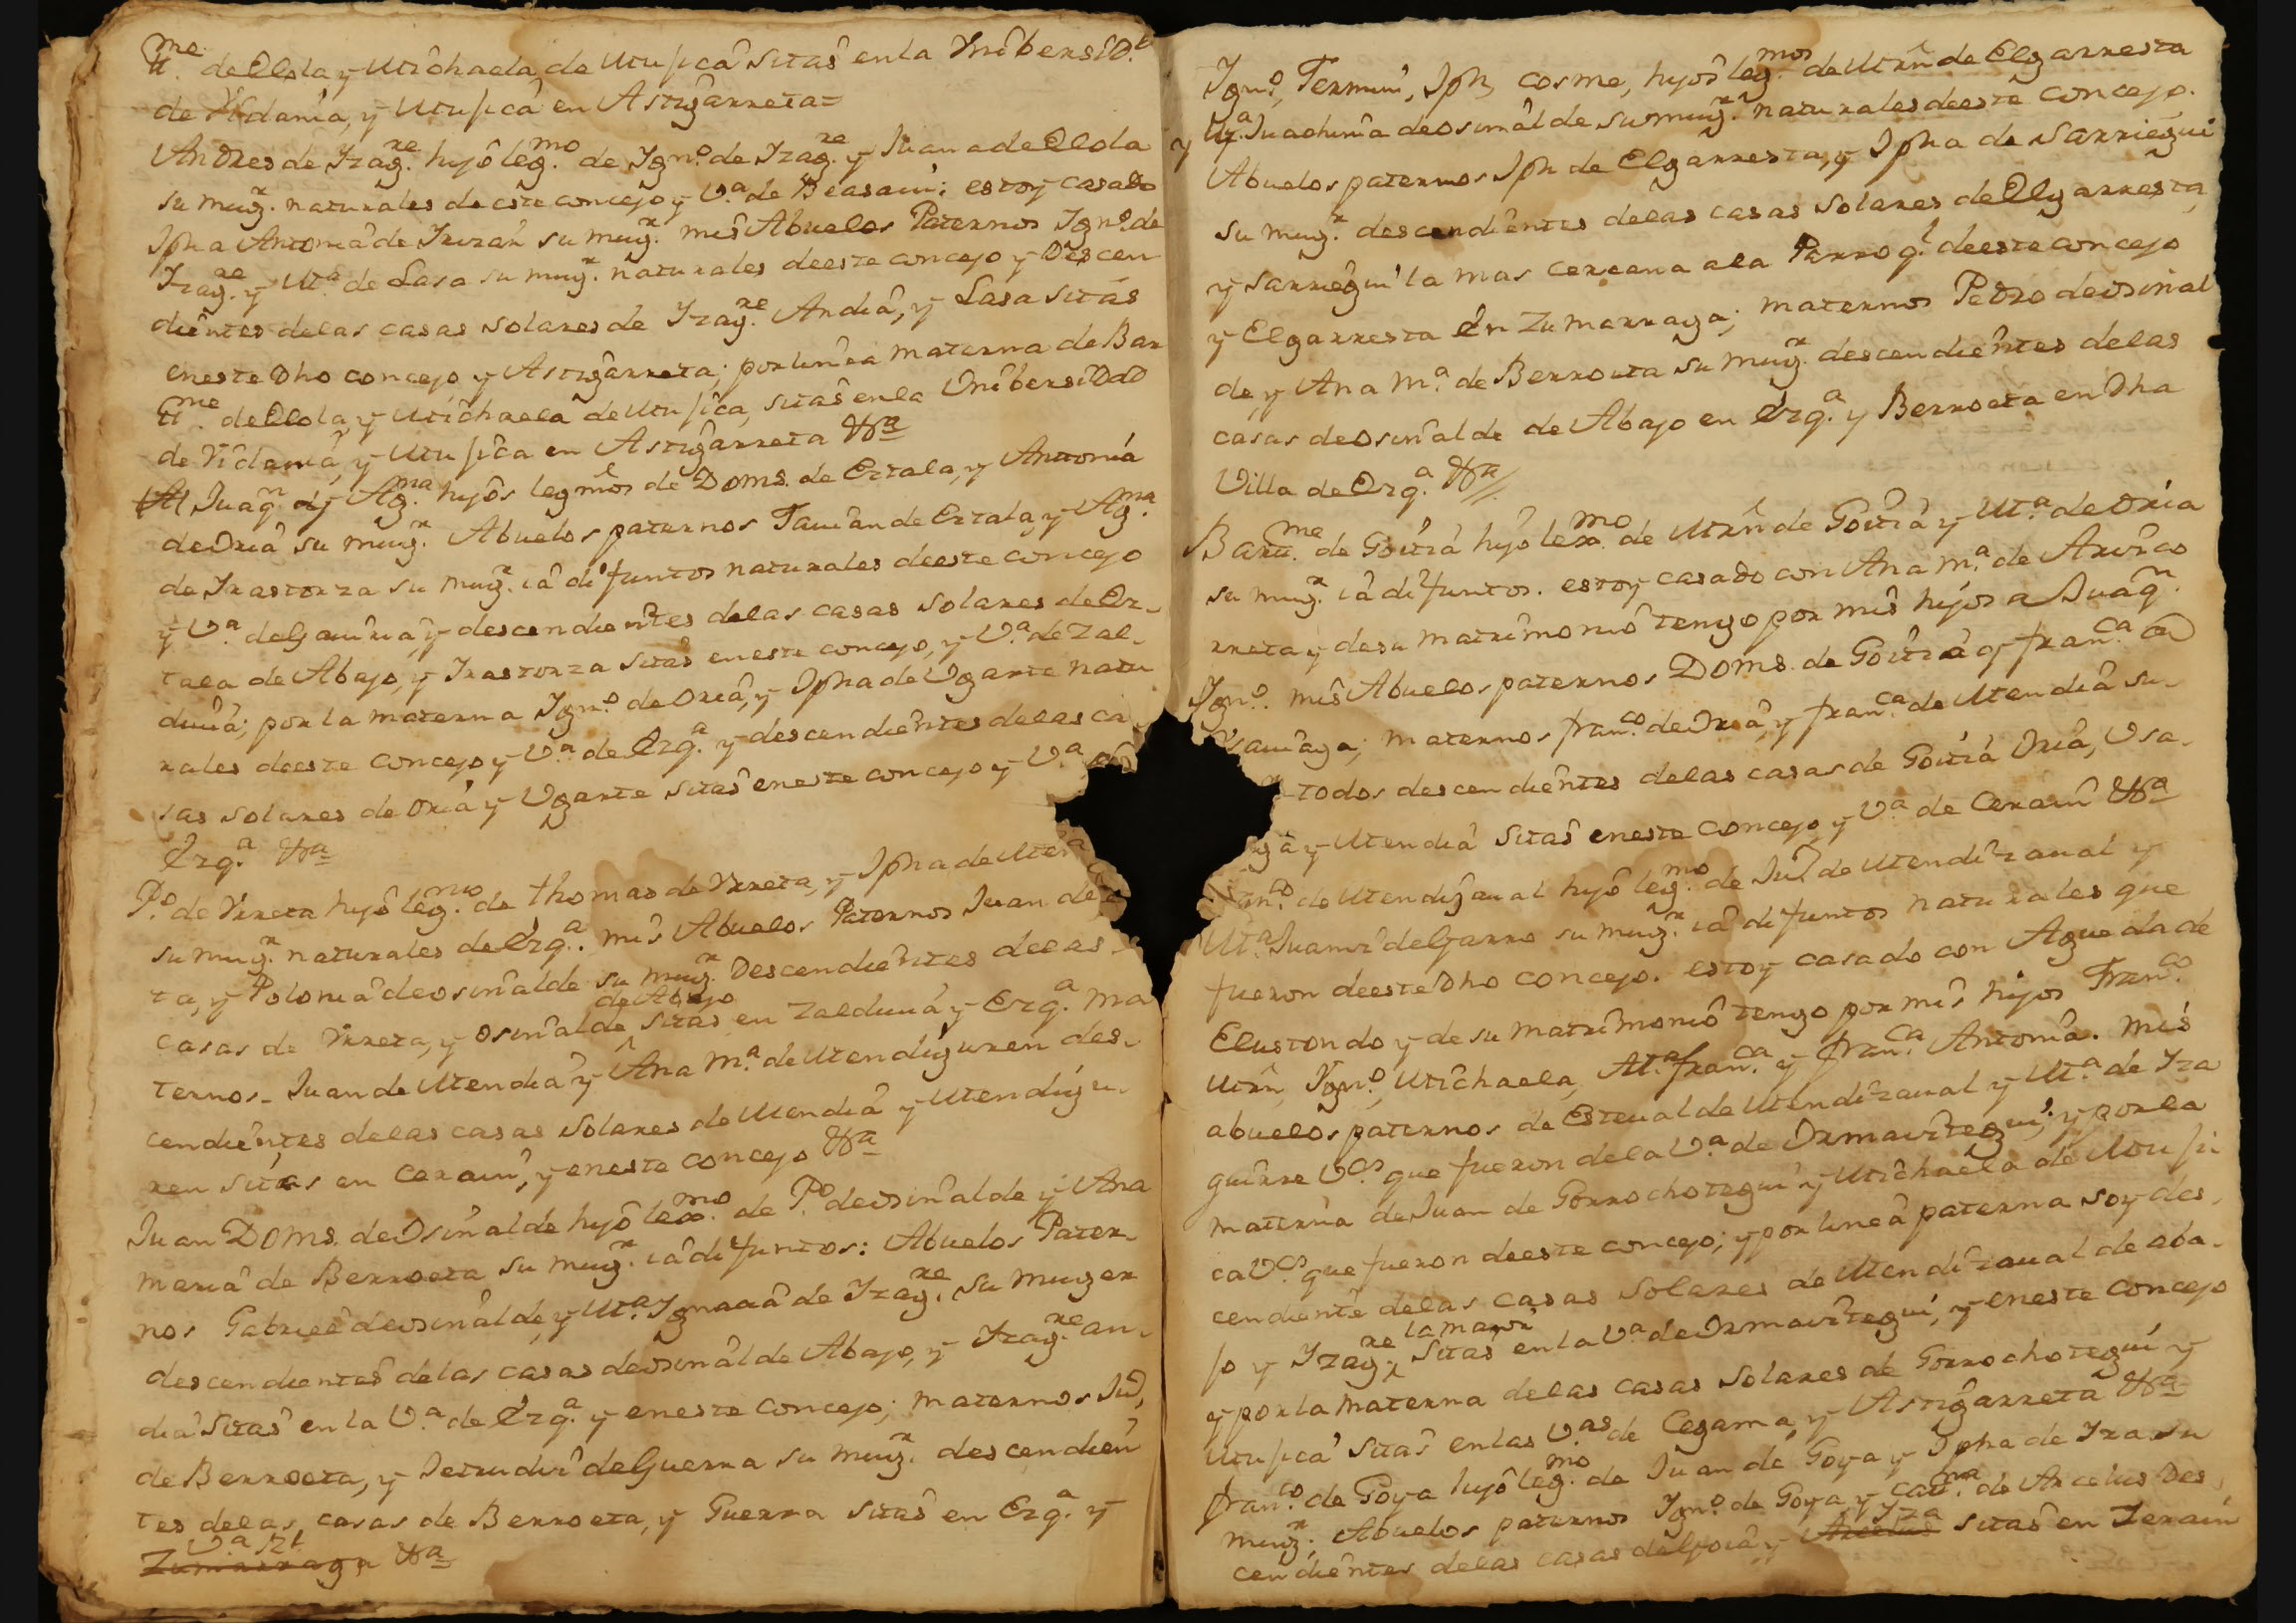 tt.me de Olola y Michaela de Mujica sitas en la Vnibersid.d
de Vidania, y Mujica en Astigarreta=
Andres de Yzag.re hijo leg.mo de Ygn.o de Yzag.re y Juana de Olola
su mug.r naturales de este concejo y V.a de Beasain; estoy casado
Jpha Antonia de Yrizar su mug.r mis Abuelos Paternos Ygn.o de
Yzag.re y M.a de Lasa su mug.r naturales deeste concejo y Descen
dientes delas casas solares de Yzag.re Andia, y Lasa sitas
eneste Dho concejo y Astigarreta; por linea materna de Bar
tt.me de Olola, y Michaela de Mujica, sitas en la Vnibersidad
de Vidania, y Mujica en Astigarreta &a
Juaq.n y Ag.na hijos legmos de Doms. de Eztala, y Antonia
de Oria su mug.r Abuelos paternos Damian de Eztala y Ag.na
de Yrastorza su mug.r ia difuntos naturales deeste concejo
y V.a de Gauiria, y descendientes delas casas solares de Ez-
tala de Abajo, y Yrastorza sitas eneste concejo, y V.a de Zal-
duuia; por la materna Ygn.o de Oria, y Jpha de Vgarte natu
rales deeste concejo y V.a de Ezq.a y descendientes delas ca
sas solares de Oria y Vgarte sitas eneste concejo y V.a
Ezq.a &a
P.o de Vrreta hijo leg.mo de thomas de Vrreta, y Jpha de
su mug.r naturales de Ezq.a. mis Abuelos Paternos Juan de
ta, y Polonia de osinalde su mug.r Descendientes delas
casas de Vrreta, y osinalde de Abajo sitas en Zalduuia y Ezq.a Ma
ternos- Juan de Mendia y Ana M.a de Mendiguren des-
cendientes delas casas solares de Mendia y Mendigu-
ren sitas en Cerain, y eneste concejo &a
Juan Doms. de Osinalde hijo leg.mo de P.o de osinalde y Ana
maria de Berroeta su mug.r ia difuntos: Abuelos Pater-
nos Gabriel de osinalde, y M.a Ygnacia de Yzag.re su muger
descendientes delas casas de osinalde Abajo, y Yzag.re an-
dia sitas en la V.a de Ezq.a y eneste concejo; maternos Ju.n
de Berroeta, y Jetrudis de Guerra su mug.r descendien
tes delas casas de Berroeta, y Guerra sitas en Ezq.a y
V.a R.l
Zumarraga &a
Ygn.o, Fermin, Jph, cosme, hijos leg.mos de Mrn de Elgarresta
y M.a Juachina de osinalde su mug.r naturales deeste concejo.
Abuelos paternos Jph de Elgarresta, y Jpha de Sarriegui
su mug.r descendientes delas casas solares de Elgarresta,
y Sarriegui la mas cercana ala Parroq.l deeste concejo
y Elgarresta en Zumarraga; maternos Pedro de osinal
de, y Ana M.a de Berroeta su mug.r descendientes delas
casas de osinalde de Abajo en Ezq.a y Berroeta en Dha
Villa de Ezq.a &a
Bartt.me de Goitia hijo leg.mo de Mrn de Goitia y M.a de Oria
su mug.r ia difuntos. estoy casado con Ana M.a de Arizco
rreta y de su matrimonio tengo por mis hijos a Juaq.n
Ygn.o. mis Abuelos paternos Doms. de Goitia y fran.ca de
sauiaga; maternos fran.co de Oria, y fran.ca de Mendia su-
todos descendientes delas casas de Goitia Oria, Vsa-
ga y Mendia sitas eneste concejo y V.a de Cerain &a
n.co de Mendizaual hijo leg.mo de Ju.n de Mendizaual y
M.a Juaniz de Garro su mug.r ia difuntos naturales que
fueron deeste Dho concejo. estoy casado con Agueda de
Elustondo y de su matrimonio tengo por mis hijos Fran.co
Mrn, Ygn.o, Michaela, M.a fran.ca y fran.ca Antonia. mis
abuelos paternos de Esteual de Mendizaual y M.a de Yza
guirre V.os que fueron dela V.a de Ormaiztegui; y por la
materna de Juan de Gorrochotegui y Michaela de Muji
ca V.os que fueron deeste concejo; y por linea paterna soy des-
cendiente delas casas solares de Mendizaual de aba-
jo y Yzag.re la maior sitas en la V.a de Ormaiztegui, y eneste concejo
y por la materna delas casas solares de Gorrochotegui y
Mujica sitas en las V.as de Cegama, y Astigarreta &a
fran.co de Goya hijo leg.mo de Juan de Goya y Jpha de Yza su
mug.r, Abuelos paternos Ygn.o de Goya, y Cat.na de Arcelus Des
cendientes delas casas de Goia y Arcelus Yza sitas en Zerain